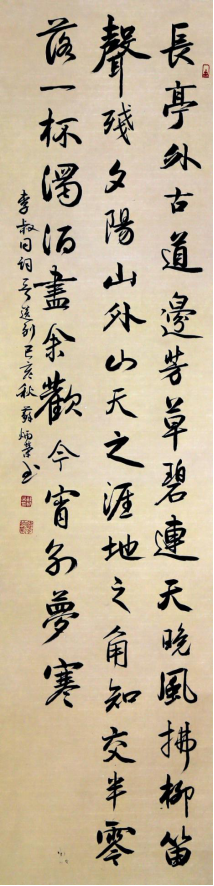 長亭外古道邊芳草碧連天晚風拂柳笛
聲殘夕陽山外山天之涯地之角知交半零
落一杯濁酒盡余歡今宵別夢寒
李叔同詞送別己亥秋蘇炳